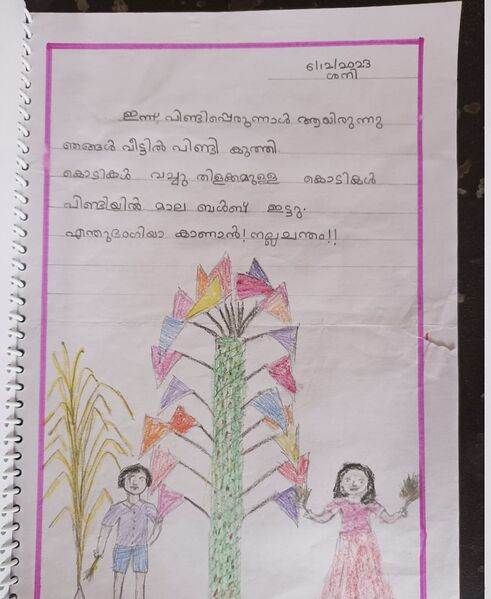 6/12/2023
ശനി
ഇന്ന് പിണ്ടിപ്പെരുന്നാൾ ആയിരുന്നു
ഞങ്ങൾ വീട്ടിൽ പിണ്ടി കുത്തി.
കൊടികൾ വച്ചു തിളക്കമുള്ള കൊടികൾ
പിണ്ടിയിൽ മാല ബൾബ് ഇട്ടു.
എന്തുഭംഗിയാ കാണാൻ! നല്ലചന്തം!!